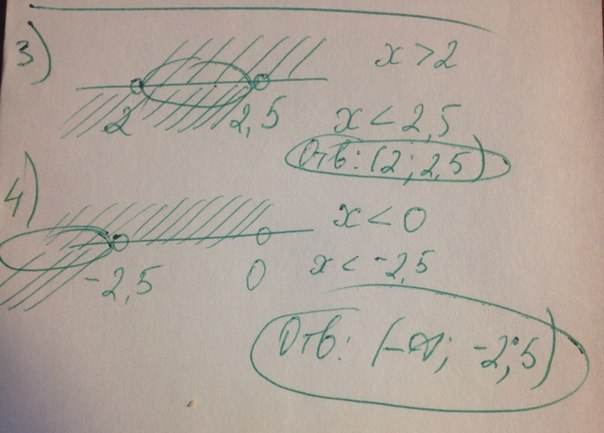 3)
x > 2
2 2,5
x < 2,5
Отв: (2; 2,5)
4)
x < 0
-2,5 0
x < -2,5
Отв: (-∞; -2,5)